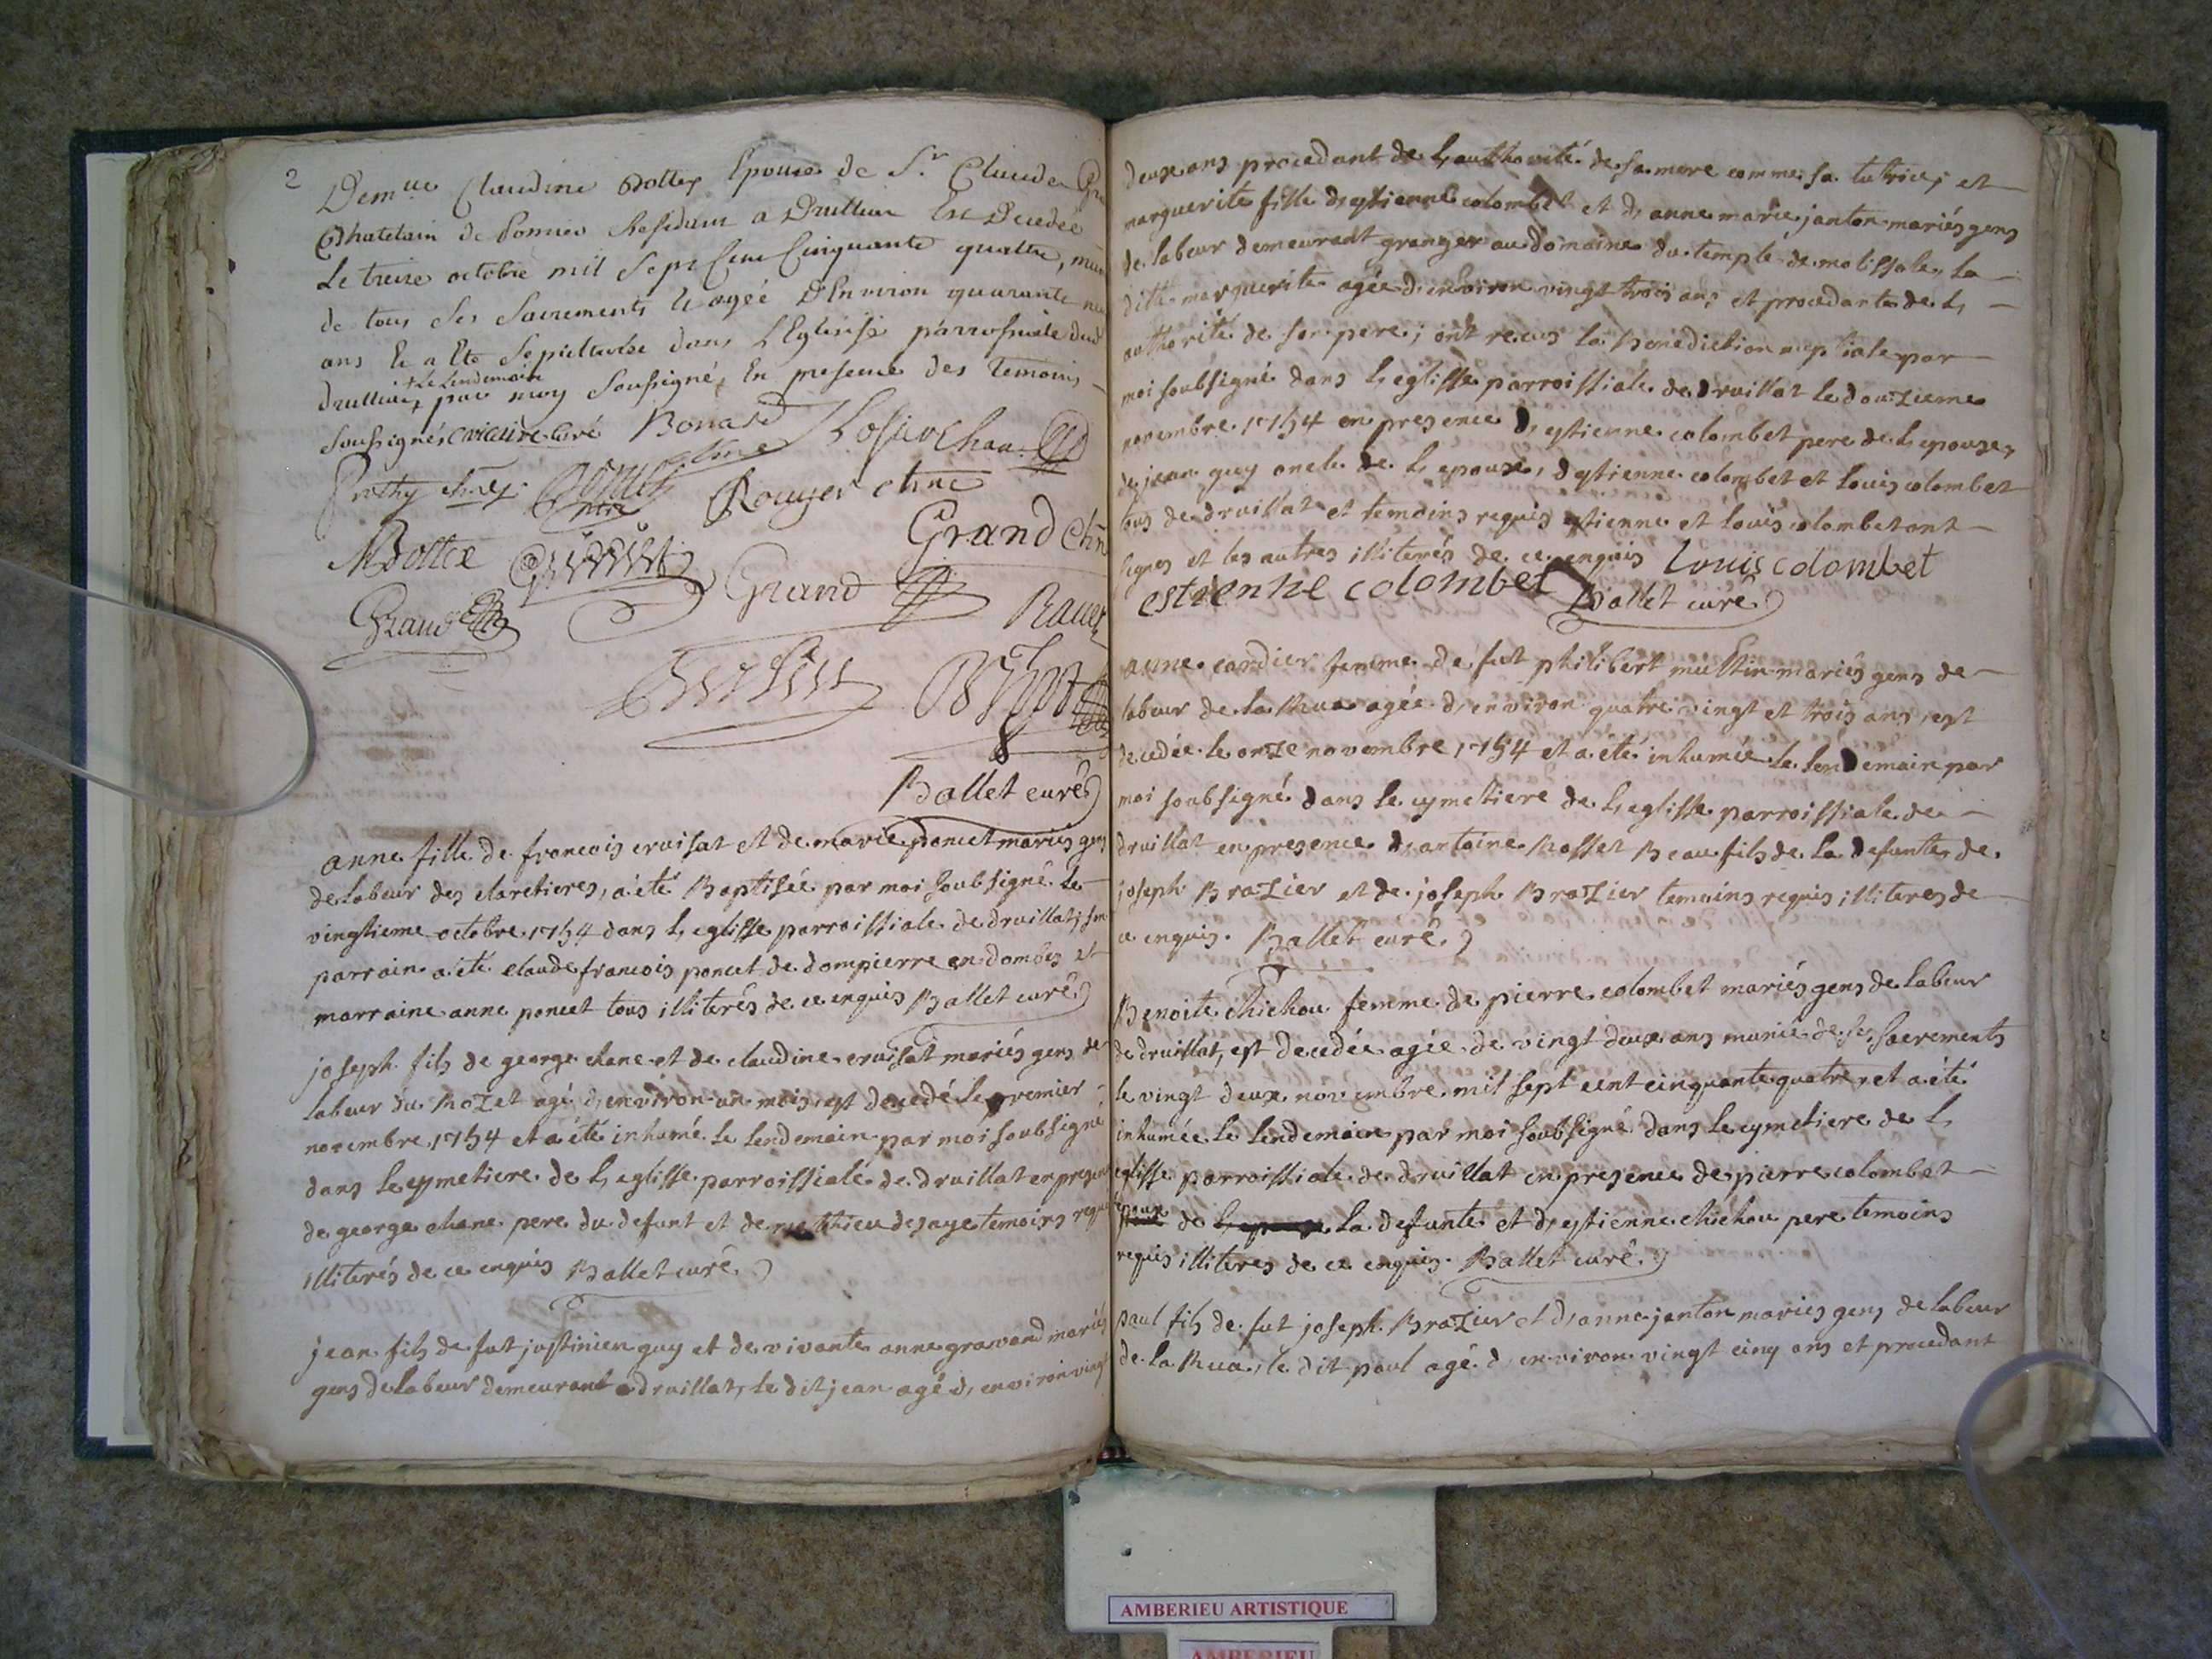 2
Dem.lle Claudine Bottex Epouse de S.r Claude
Chatelain de Residant a Druillia Est Decedée
Le treize octobre mil Sept Cent Cinquante quattre,
de tous Ses Sacrements agée D'Environ quarante
ans Et a Ete Sepulturée dans L'Eglise parrossiale dud
+ Le Lendemain
Druillia, par moy Sousigné, En presence des Temoins
Soussignés curé Bonard
Rouyer
Grand
MBottex
Grand
Grand
Ravet
Ballet curé
anne fille de francois cruisat et de marie poncet mariés gens
de labeur des claretieres, a été Baptisée par moi soubsigné le
vingtieme octobre 1754 dans l, eglisse parroissiale de druillat, son
parrain a été claude francois poncet de dompierre en dombes et
marraine anne poncet tous illiterés de ce enquis Ballet curé
joseph fils de george chane et de claudine cruisat mariés gens de
labeur du Mozet agé d, environ un mois, est decedé le premier
novembre 1754 et a été inhumé le lendemain par moi soubsigné
dans le cymetiere de l, eglisse parroissiale de druillat en presence
de george chane pere du defunt et de matthieu desaye temoins requis
illiterés de ce enquis Ballet curé
jean fils de fut justinien guy et de vivante anne gravand mariés
gens de labeur demeurant a druillat, le dit jean agé d, environ vingt
deux ans procedant de l, authorité de sa mere comme sa tutrice; et
marguerite fille d, estienne colombet et d, anne marie janton mariés gens
de labeur demeurant granger au domaine du temple de molissole, la
dite marguerite agée d, environ vingt trois ans et procedante de l,
authorité de son pere; ont recus la Benediction nuptiale par
moi soubsigné dans l, eglisse parroissiale de druillat le douzieme
novembre 1754 en presence d, estienne colombet pere de l, epouse,
de jean guy oncle de l, epoux, d, estienne colombet et louis colombet
tous de druillat et temoins requis estienne et louis colombet ont
signes et les autres illiterés de ce enquis Louis colombet
estienne colombet Ballet curé
anne cardier femme de fut philibert multin mariés gens de
labeur de la Rua agée d, environ quatre vingt et trois ans, est
decedée le onze novembre 1754 et a été inhumée le lendemain par
moi soubsigné dans le cymetiere de l, eglisse parroissiale de
druillat en presence d, antoine Rosset Beau fils de la defunte, de
joseph Brazier et de joseph Brazier temoins requis illiteres de
ce enquis. Ballet curé
Benoite chichou femme de pierre colombet mariés gens de labeur
de druillat, est decedée agée de vingt deux ans munie de ses sacrements
le vingt deux novembre mil sept cent cinquante quatre, et a été
inhumée le lendemain par moi soubsigné dans le cymetiere de l,
eglisse parroissiale de druillat en presence de pierre colombet
epoux de la defunte et d, estienne chichou pere temoins
requis illiteres de ce enquis. Ballet curé
paul fils de fut joseph Brazier et d, anne janton mariés gens de labeur
de la Rua, le dit paul agé d, environ vingt cinq ans et procedant
AMBERIEU ARTISTIQUE
AMBERIEU